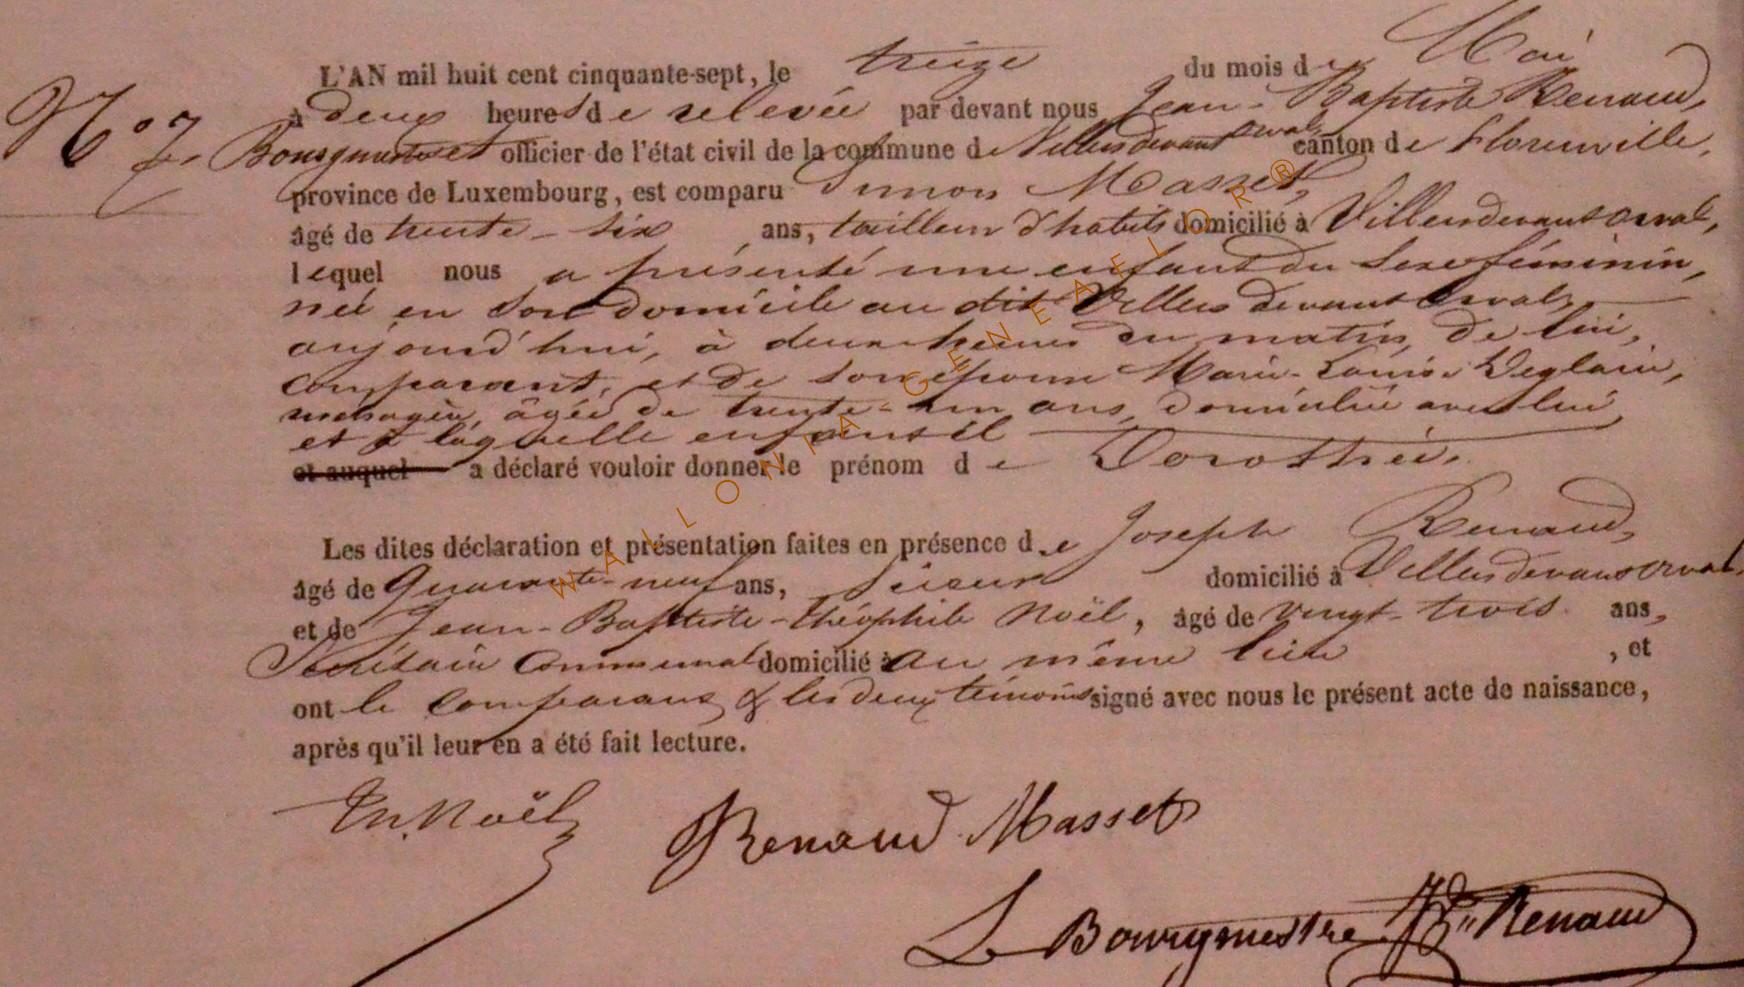 N° 7
L'AN mil huit cent cinquante-sept, le treize du mois de Mai
à deux heures de relevée par devant nous Jean-Baptiste Renaud,
Bourgmestre et officier de l'état civil de la commune de Villers devant orval canton de Florenville,
province de Luxembourg, est comparu Simon Masset,
âgé de trente-six ans, tailleur d'habits domicilié à Villers devant orval,
lequel nous a présenté une enfant du sexe féminin,
née en son domicile au dit Villers devant Orval,
aujourd'hui, à deux heures du matin, de lui,
comparant, et de son épouse Marie-Louise Deglain,
ménagère, âgée de trente-un ans, domiciliée avec lui,
et à laquelle enfant il
et auquel a déclaré vouloir donner le prénom de Dorothée.
Les dites déclaration et présentation faites en présence de Joseph Renaud,
âgé de Quarante-neuf ans, domicilié à Villers devant orval
et de Jean-Baptiste-Théophile Noël, âgé de vingt-trois ans,
Secrétaire communal domicilié à au même lieu, et
ont le comparant & les deux témoins signé avec nous le présent acte de naissance,
après qu'il leur en a été fait lecture.
Th. Noël Renaud Masset
Le Bourgmestre JBte Renaud
WALLONIA GENEAELOR ®